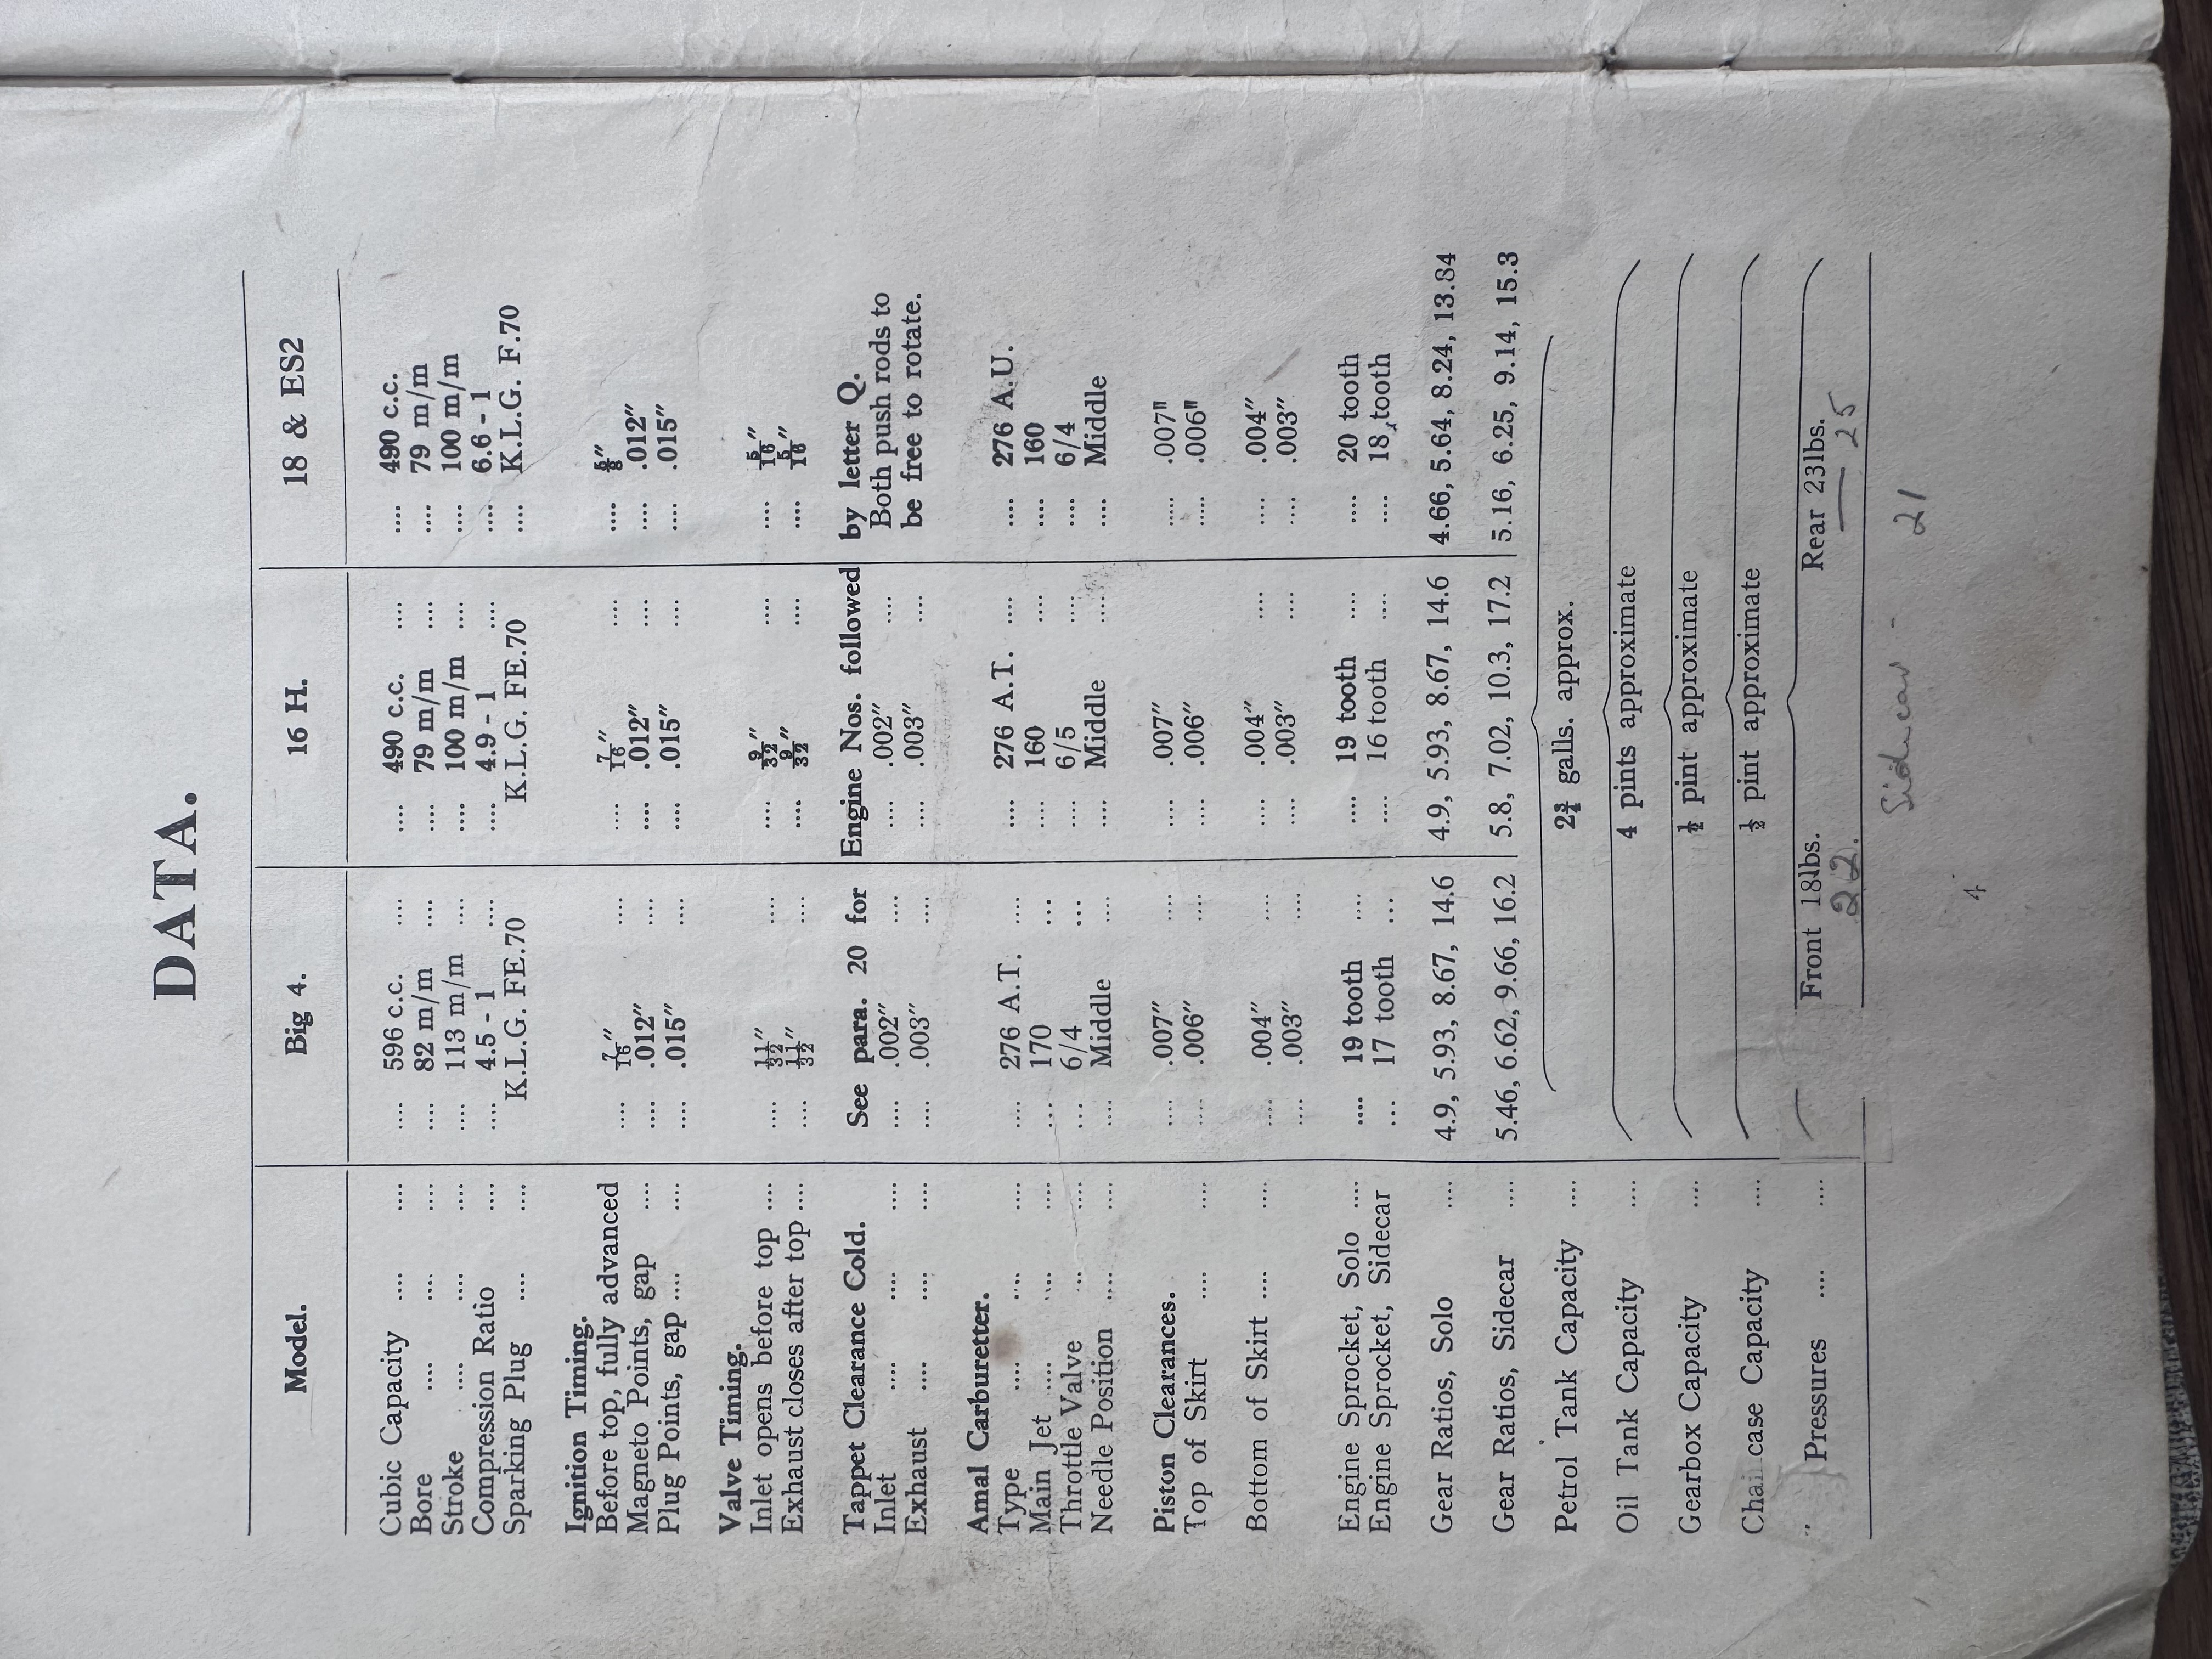 DATA.
Model. Big 4. 16 H. 18 & ES2
Cubic Capacity .... .... .... 596 c.c. .... .... 490 c.c. .... .... 490 c.c.
Bore .... .... .... .... 82 m/m .... .... 79 m/m .... .... 79 m/m
Stroke .... .... .... .... 113 m/m .... .... 100 m/m .... .... 100 m/m
Compression Ratio .... .... 4.5 - 1 .... .... 4.9 - 1 .... .... 6.6 - 1
Sparking Plug .... .... K.L.G. FE.70 K.L.G. FE.70 .... K.L.G. F.70
Ignition Timing.
Before top, fully advanced .... 7/16″ .... .... 7/16″ .... .... 5/8″
Magneto Points, gap .... .... .012″ .... .... .012″ .... .... .012″
Plug Points, gap .... .... .... .015″ .... .... .015″ .... .... .015″
Valve Timing.
Inlet opens before top .... .... 11/32″ .... .... 9/32″ .... .... 5/16″
Exhaust closes after top .... .... 11/32″ .... .... 9/32″ .... .... 5/16″
Tappet Clearance Cold. See para. 20 for Engine Nos. followed by letter Q.
Inlet .... .... .... .... .002″ .... .... .002″ .... Both push rods to
Exhaust .... .... .... .... .003″ .... .... .003″ .... be free to rotate.
Amal Carburetter.
Type .... .... .... .... 276 A.T. .... .... 276 A.T. .... .... 276 A.U.
Main Jet .... .... .... ... 170 ... .... 160 .... .... 160
Throttle Valve ... .... ... 6/4 ... .... 6/5 .... .... 6/4
Needle Position .... .... .... Middle .... .... Middle .... .... Middle
Piston Clearances. .... .007″ .... .... .007″ ..... .007″
Top of Skirt .... .... .... .006″ .... .... .006″ ..... .006″
Bottom of Skirt .... .... .... .004″ .... .... .004″ .... .... .004″
.... .003″ .... .... .003″ .... .... .003″
Engine Sprocket, Solo .... .... 19 tooth .... .... 19 tooth .... .... 20 tooth
Engine Sprocket, Sidecar ... 17 tooth ... .... 16 tooth .... .... 18 tooth
Gear Ratios, Solo .... 4.9, 5.93, 8.67, 14.6 4.9, 5.93, 8.67, 14.6 4.66, 5.64, 8.24, 13.84
Gear Ratios, Sidecar .... 5.46, 6.62, 9.66, 16.2 5.8, 7.02, 10.3, 17.2 5.16, 6.25, 9.14, 15.3
Petrol Tank Capacity .... 2¾ galls. approx.
Oil Tank Capacity .... 4 pints approximate
Gearbox Capacity .... ½ pint approximate
Chaincase Capacity .... ½ pint approximate
Pressures .... .... Front 18lbs. Rear 23lbs.
22. 25
Sidecar - 21
4